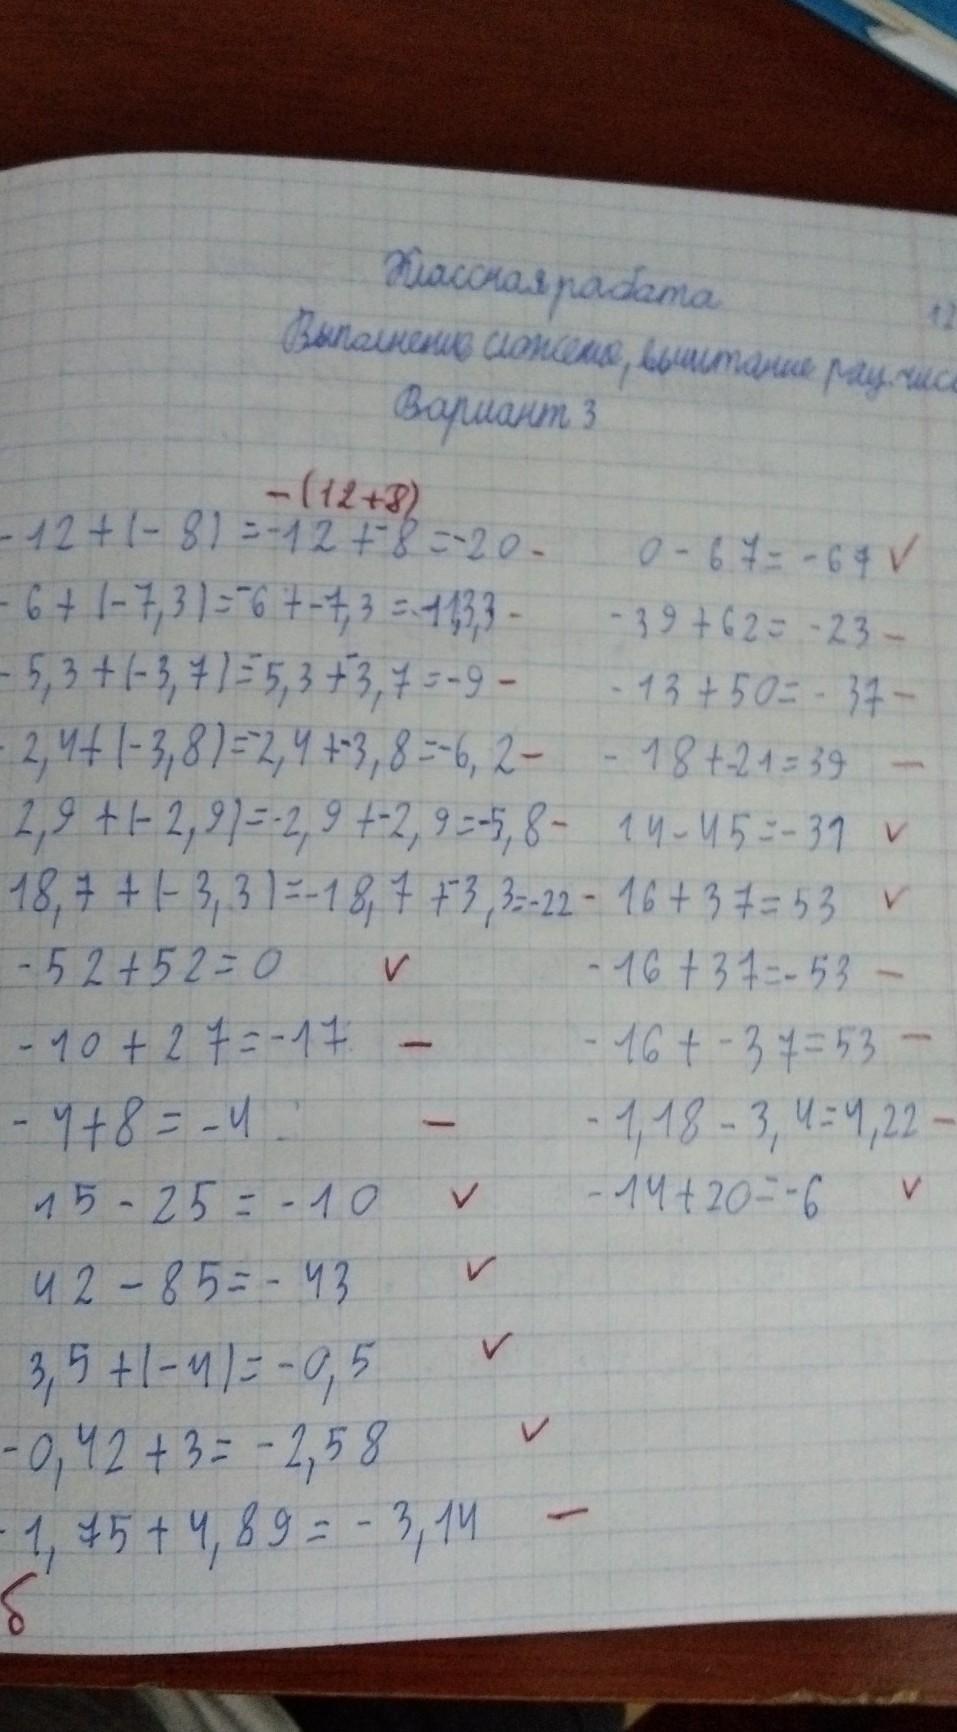 Классная работа
12
Выполнение сложение, вычитание рац. чис
Вариант 3
-(12+8)
-12+(-8)=-12+-8=-20 -
-6+(-7,3)=-6+-7,3=-13,3 -
-5,3+(-3,7)=-5,3+-3,7=-9 -
-2,4+(-3,8)=-2,4+-3,8=-6,2 -
2,9+(-2,9)=-2,9+-2,9=-5,8 -
18,7+(-3,3)=-18,7+-3,3=-22 -
-52+52=0 ✓
-10+27=-17 -
-4+8=-4 -
15-25=-10 ✓
42-85=-43 ✓
3,5+(-4)=-0,5 ✓
-0,42+3=-2,58 ✓
-1,75+4,89=-3,14 -
б
0-67=-67 ✓
-39+62=-23 -
-13+50=-37 -
-18+-21=39 -
14-45=-31 ✓
16+37=53 ✓
-16+37=-53 -
-16+-37=53 -
-1,18-3,4=4,22 -
-14+20=-6 ✓